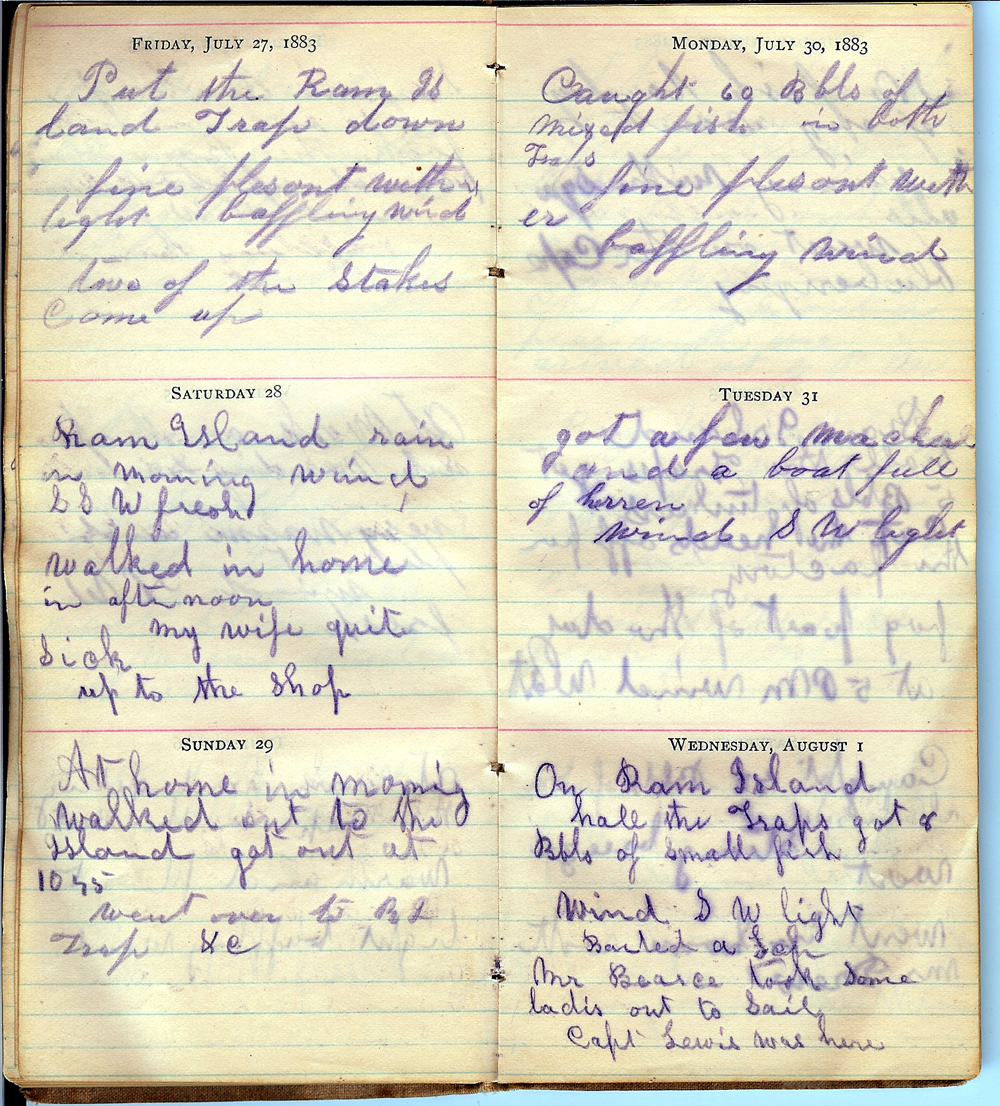 FRIDAY, JULY 27, 1883
Put the Ram Is
land Trap down
fine plesont weth
light baffling wind
two of the Stakes
Come up
SATURDAY 28
Ram Island rain
in morning wind
S S W fresh
walked in home
in afternoon
my wife quite
Sick
up to the Shop
SUNDAY 29
At home in moring
walked out to the
Island got out at
10 45
went over to R I
Trap &c
MONDAY, JULY 30, 1883
Caught 60 Bbls of
mixed fish in both
Traps
fine plesont weth
er
baffling wind
TUESDAY 31
got a few mackel
and a boat full
of herren
wind S W light
WEDNESDAY, AUGUST 1
On Ram Island
hall the Traps got 8
Bbls of Small fish
Wind S W light
Mr Bearce took Some
ladis out to Sail
Capt Lewis was here